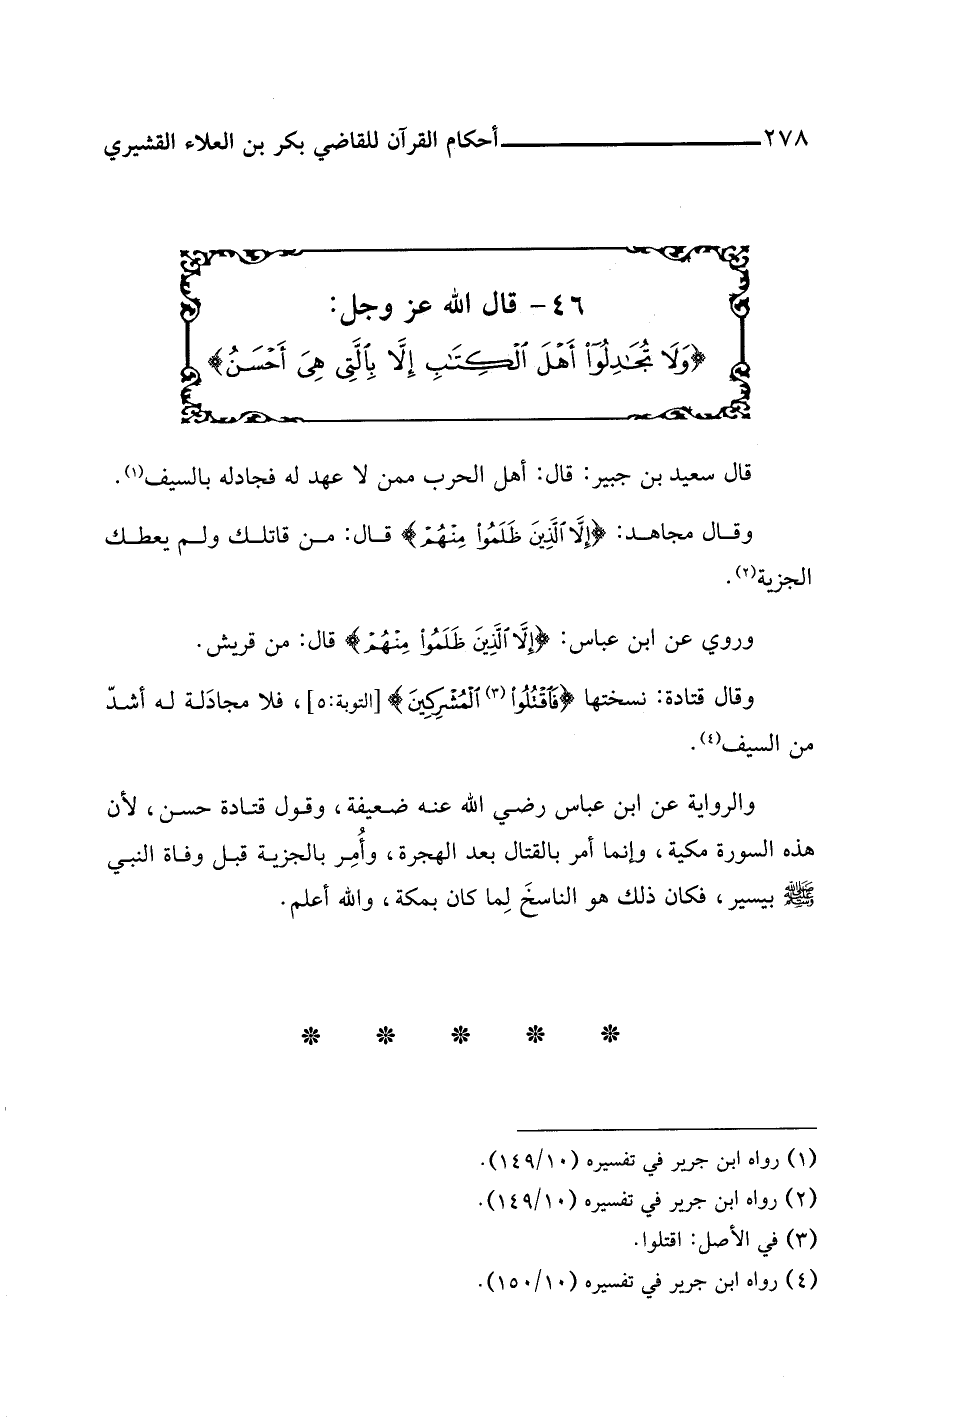 ٢٧٨ أحكام القرآن للقاضي بكر بن العلاء القشيري
٤٦- قال الله عز وجل:
﴿وَلَا تُجَٰدِلُوٓا۟ أَهْلَ ٱلْكِتَٰبِ إِلَّا بِٱلَّتِى هِىَ أَحْسَنُ﴾
قال سعيد بن جبير: قال: أهل الحرب ممن لا عهد له فجادله بالسيف(١).
وقال مجاهد: ﴿إِلَّا ٱلَّذِينَ ظَلَمُوا۟ مِنْهُمْ﴾ قال: من قاتلك ولم يعطك
الجزية(٢).
وروي عن ابن عباس: ﴿إِلَّا ٱلَّذِينَ ظَلَمُوا۟ مِنْهُمْ﴾ قال: من قريش.
وقال قتادة: نسختها ﴿فَٱقْتُلُوا۟(٣) ٱلْمُشْرِكِينَ﴾ [التوبة:٥]، فلا مجادَلة له أشدّ
من السيف(٤).
والرواية عن ابن عباس رضي الله عنه ضعيفة، وقول قتادة حسن، لأن
هذه السورة مكية، وإنما أمر بالقتال بعد الهجرة، وأُمِر بالجزية قبل وفاة النبي
ﷺ بيسير، فكان ذلك هو الناسخَ لِما كان بمكة، والله أعلم.
(١) رواه ابن جرير في تفسيره (١٤٩/١٠).
(٢) رواه ابن جرير في تفسيره (١٤٩/١٠).
(٣) في الأصل: اقتلوا.
(٤) رواه ابن جرير في تفسيره (١٥٠/١٠).